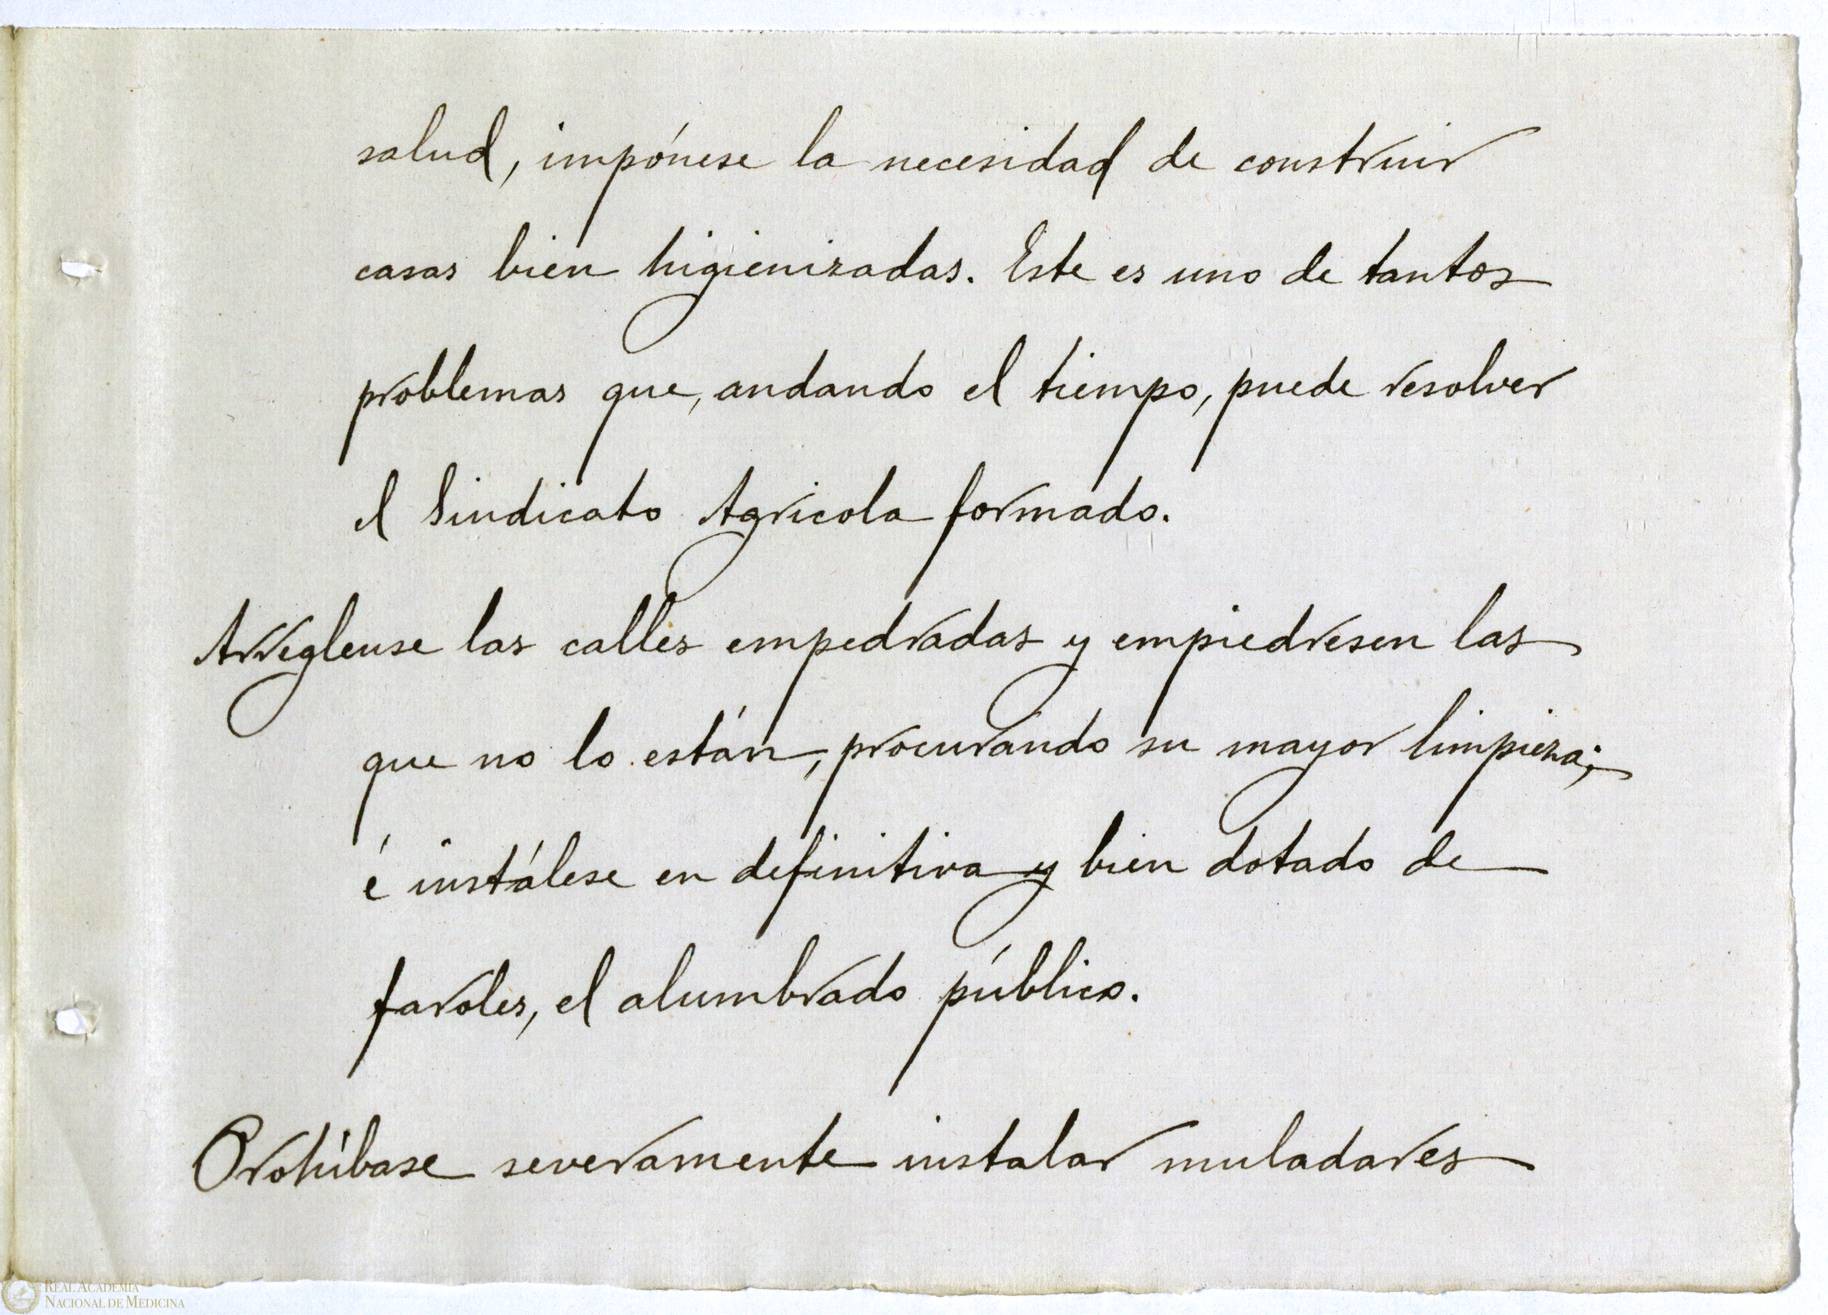 salud, impónese la necesidad de construir
casas bien higienizadas. Este es uno de tantos
problemas que, andando el tiempo, puede resolver
el Sindicato Agricola formado.
Arreglense las calles empedradas y empiedresen las
que no lo están, procurando su mayor limpieza;
é instálese en definitiva y bien dotado de
faroles, el alumbrado público.
Prohíbase severamente instalar muladares
REAL ACADEMIA
NACIONAL DE MEDICINA